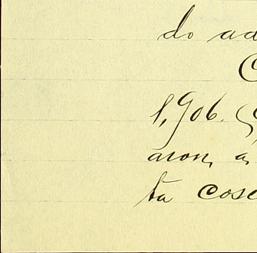 do ad
C
1,906. &
aron, a
ta cose